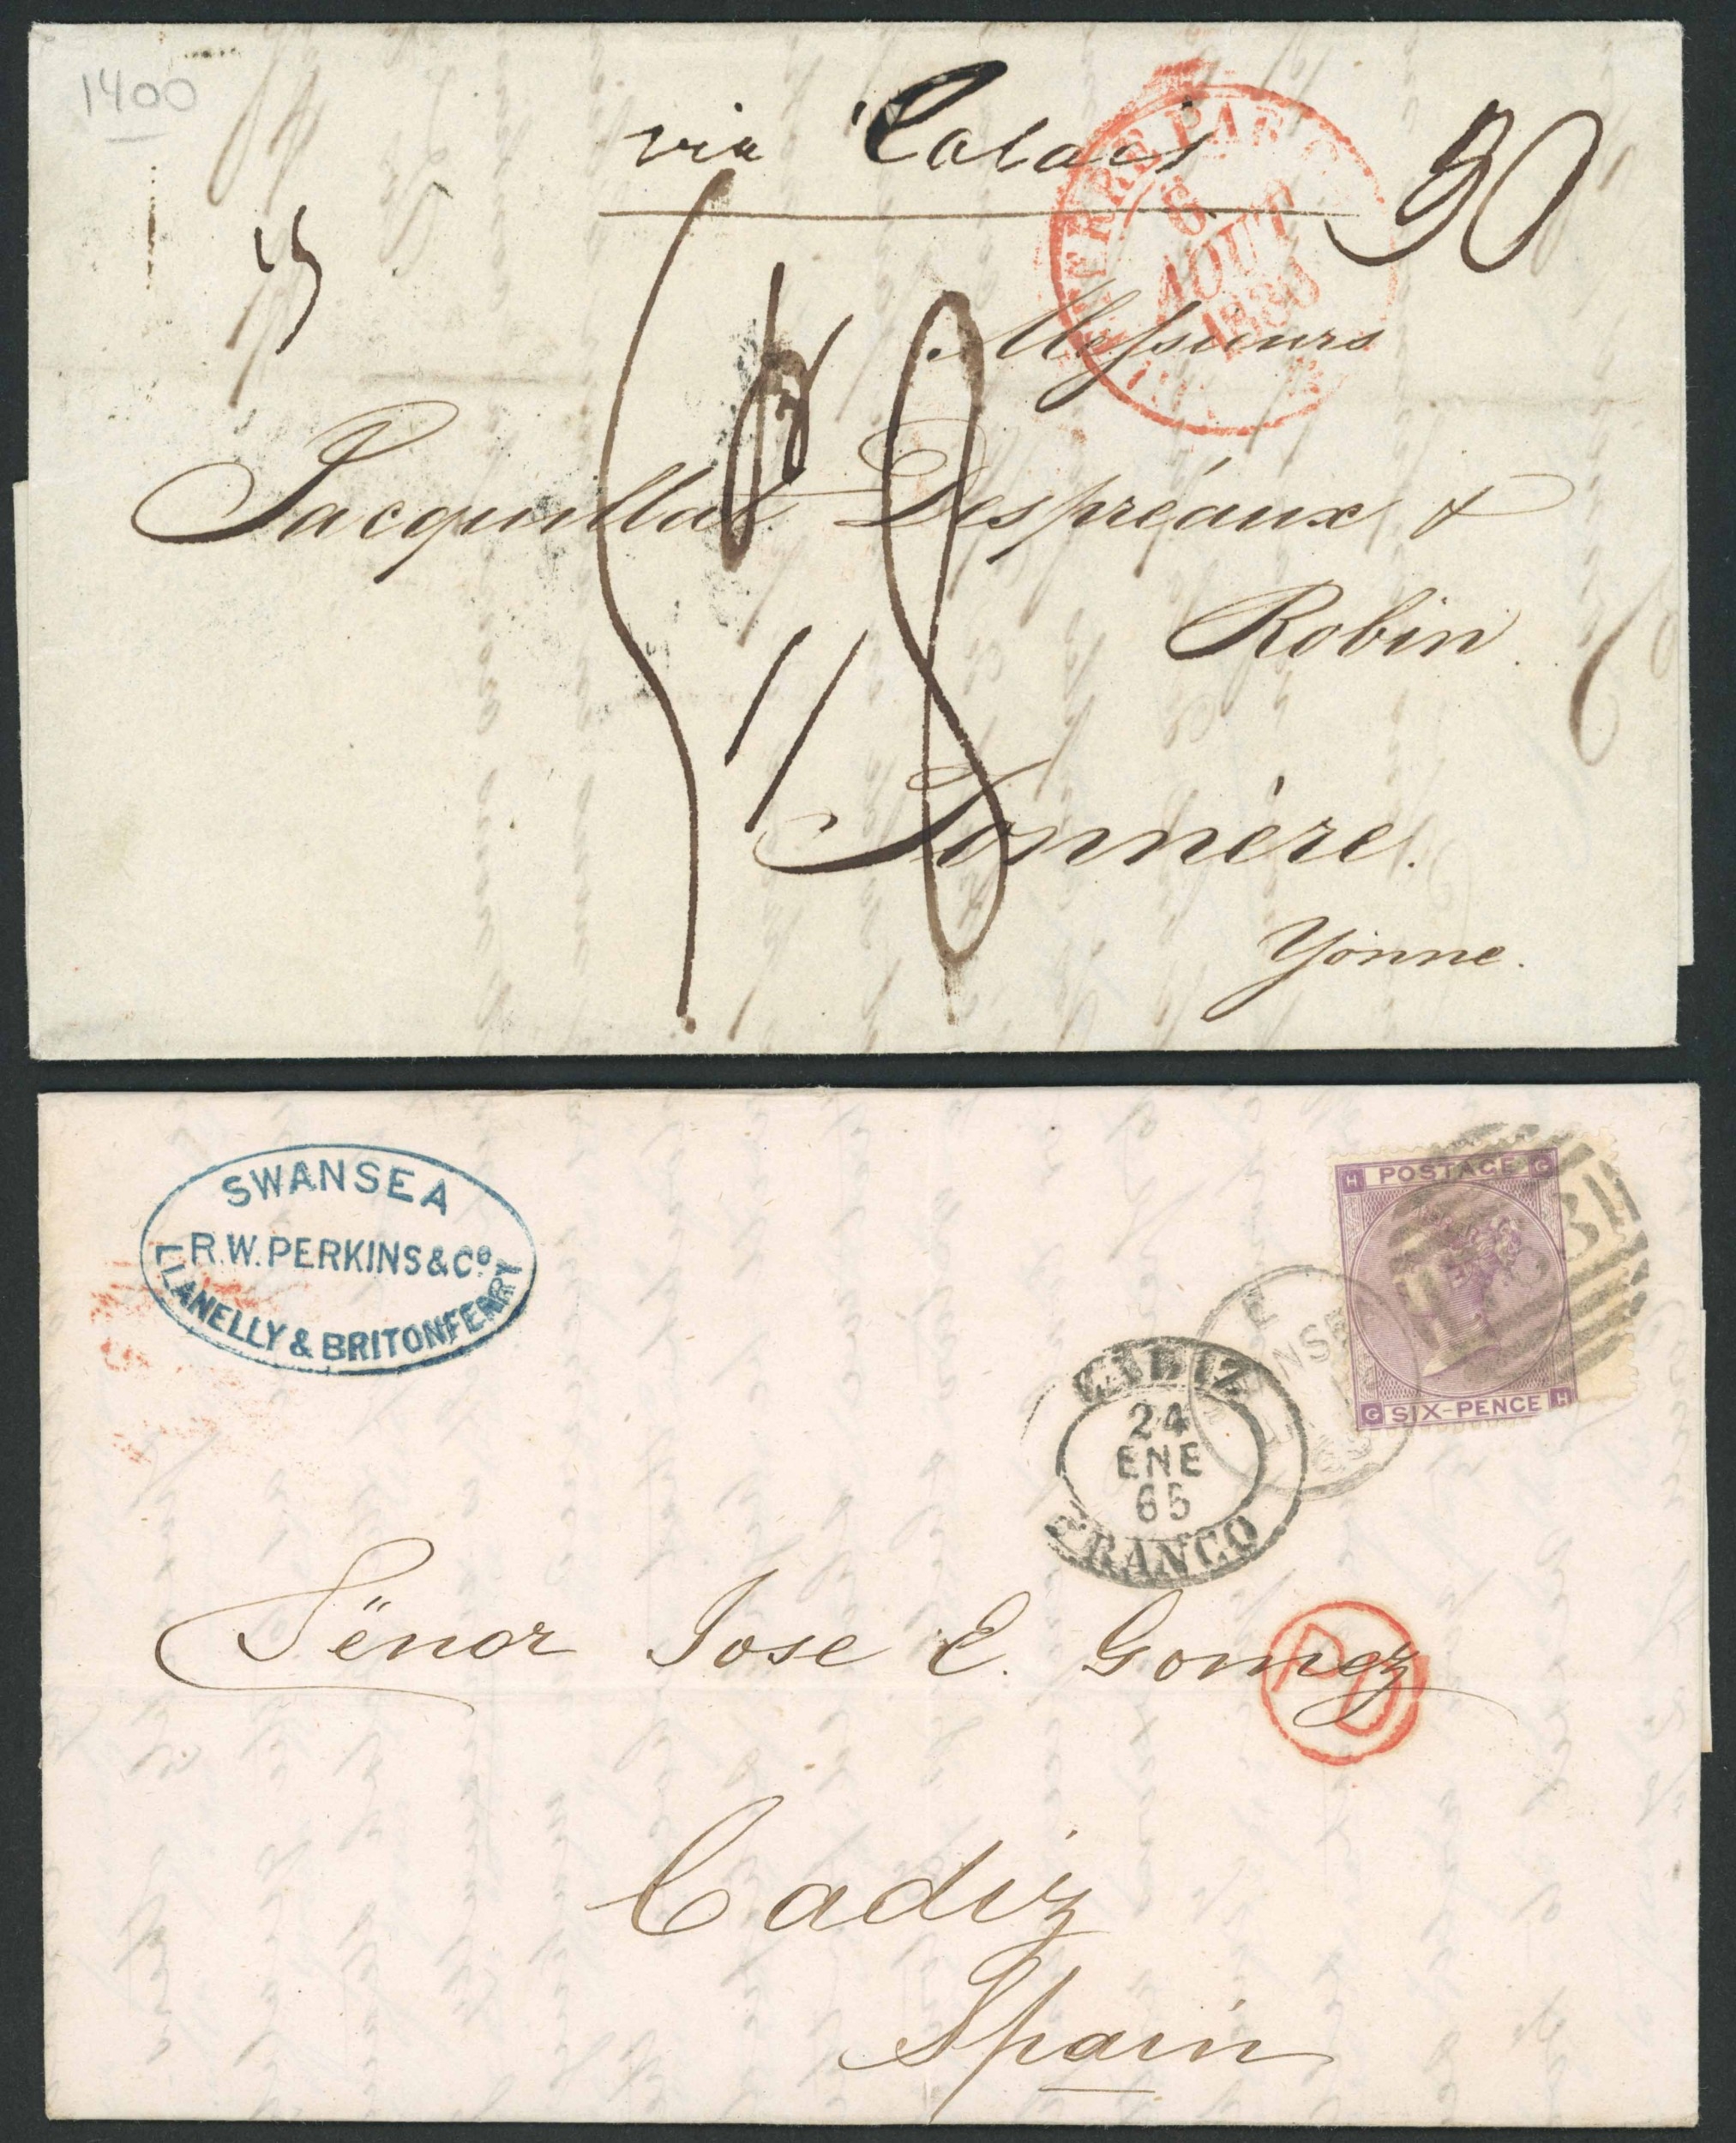 1400
via Calais
30
6
AOUT
Messieurs
Jacquillat Despréaux &
Robin
Tonnère.
Yonne.
SWANSEA
R.W. PERKINS & Co.
LLANELLY & BRITONFERRY
H POSTAGE G
G SIX-PENCE H
CADIZ
24
ENE
65
FRANCO
PD
Sënor Jose E. Gomez
Cadiz
Spain